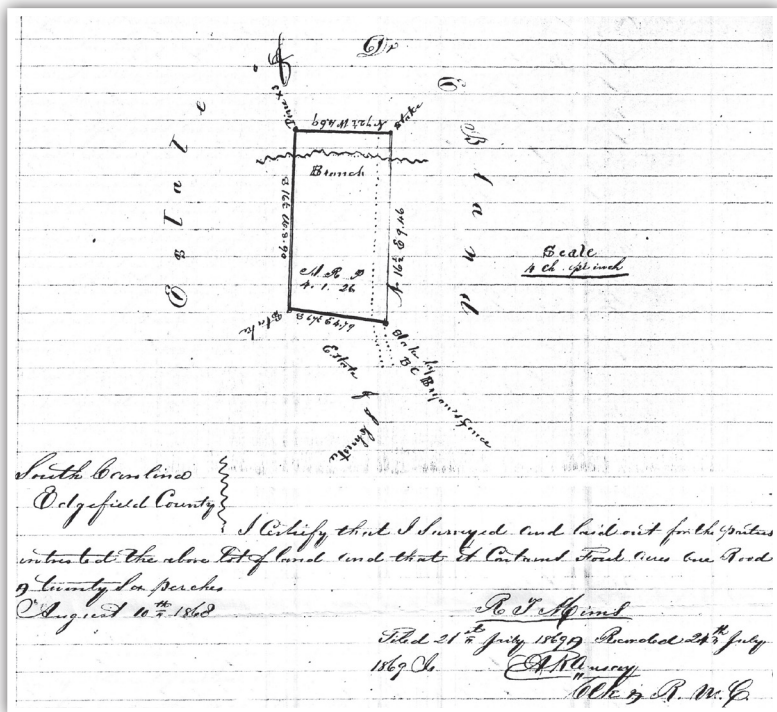 Estate of Dr J O Bland
Pine X3
N 72½ W 4.69
Stake
Branch
S 16½ W 8.90
N 16½ E 9.46
Scale
4 ch. pr inch
A. R. P
4. 1. 26
Stake
Stake by
B C Bryan's fence
Estate of
South Carolina
Edgefield County
I Certify that I Surveyed and laid out for the parties
intrested the above lot of land and that it Contains Four acres one Rood
& twenty Six perches
August 10th 1868
R T Mims
Filed 21st July 1869 & Recorded 24th July
1869
Clk & R. M. C.